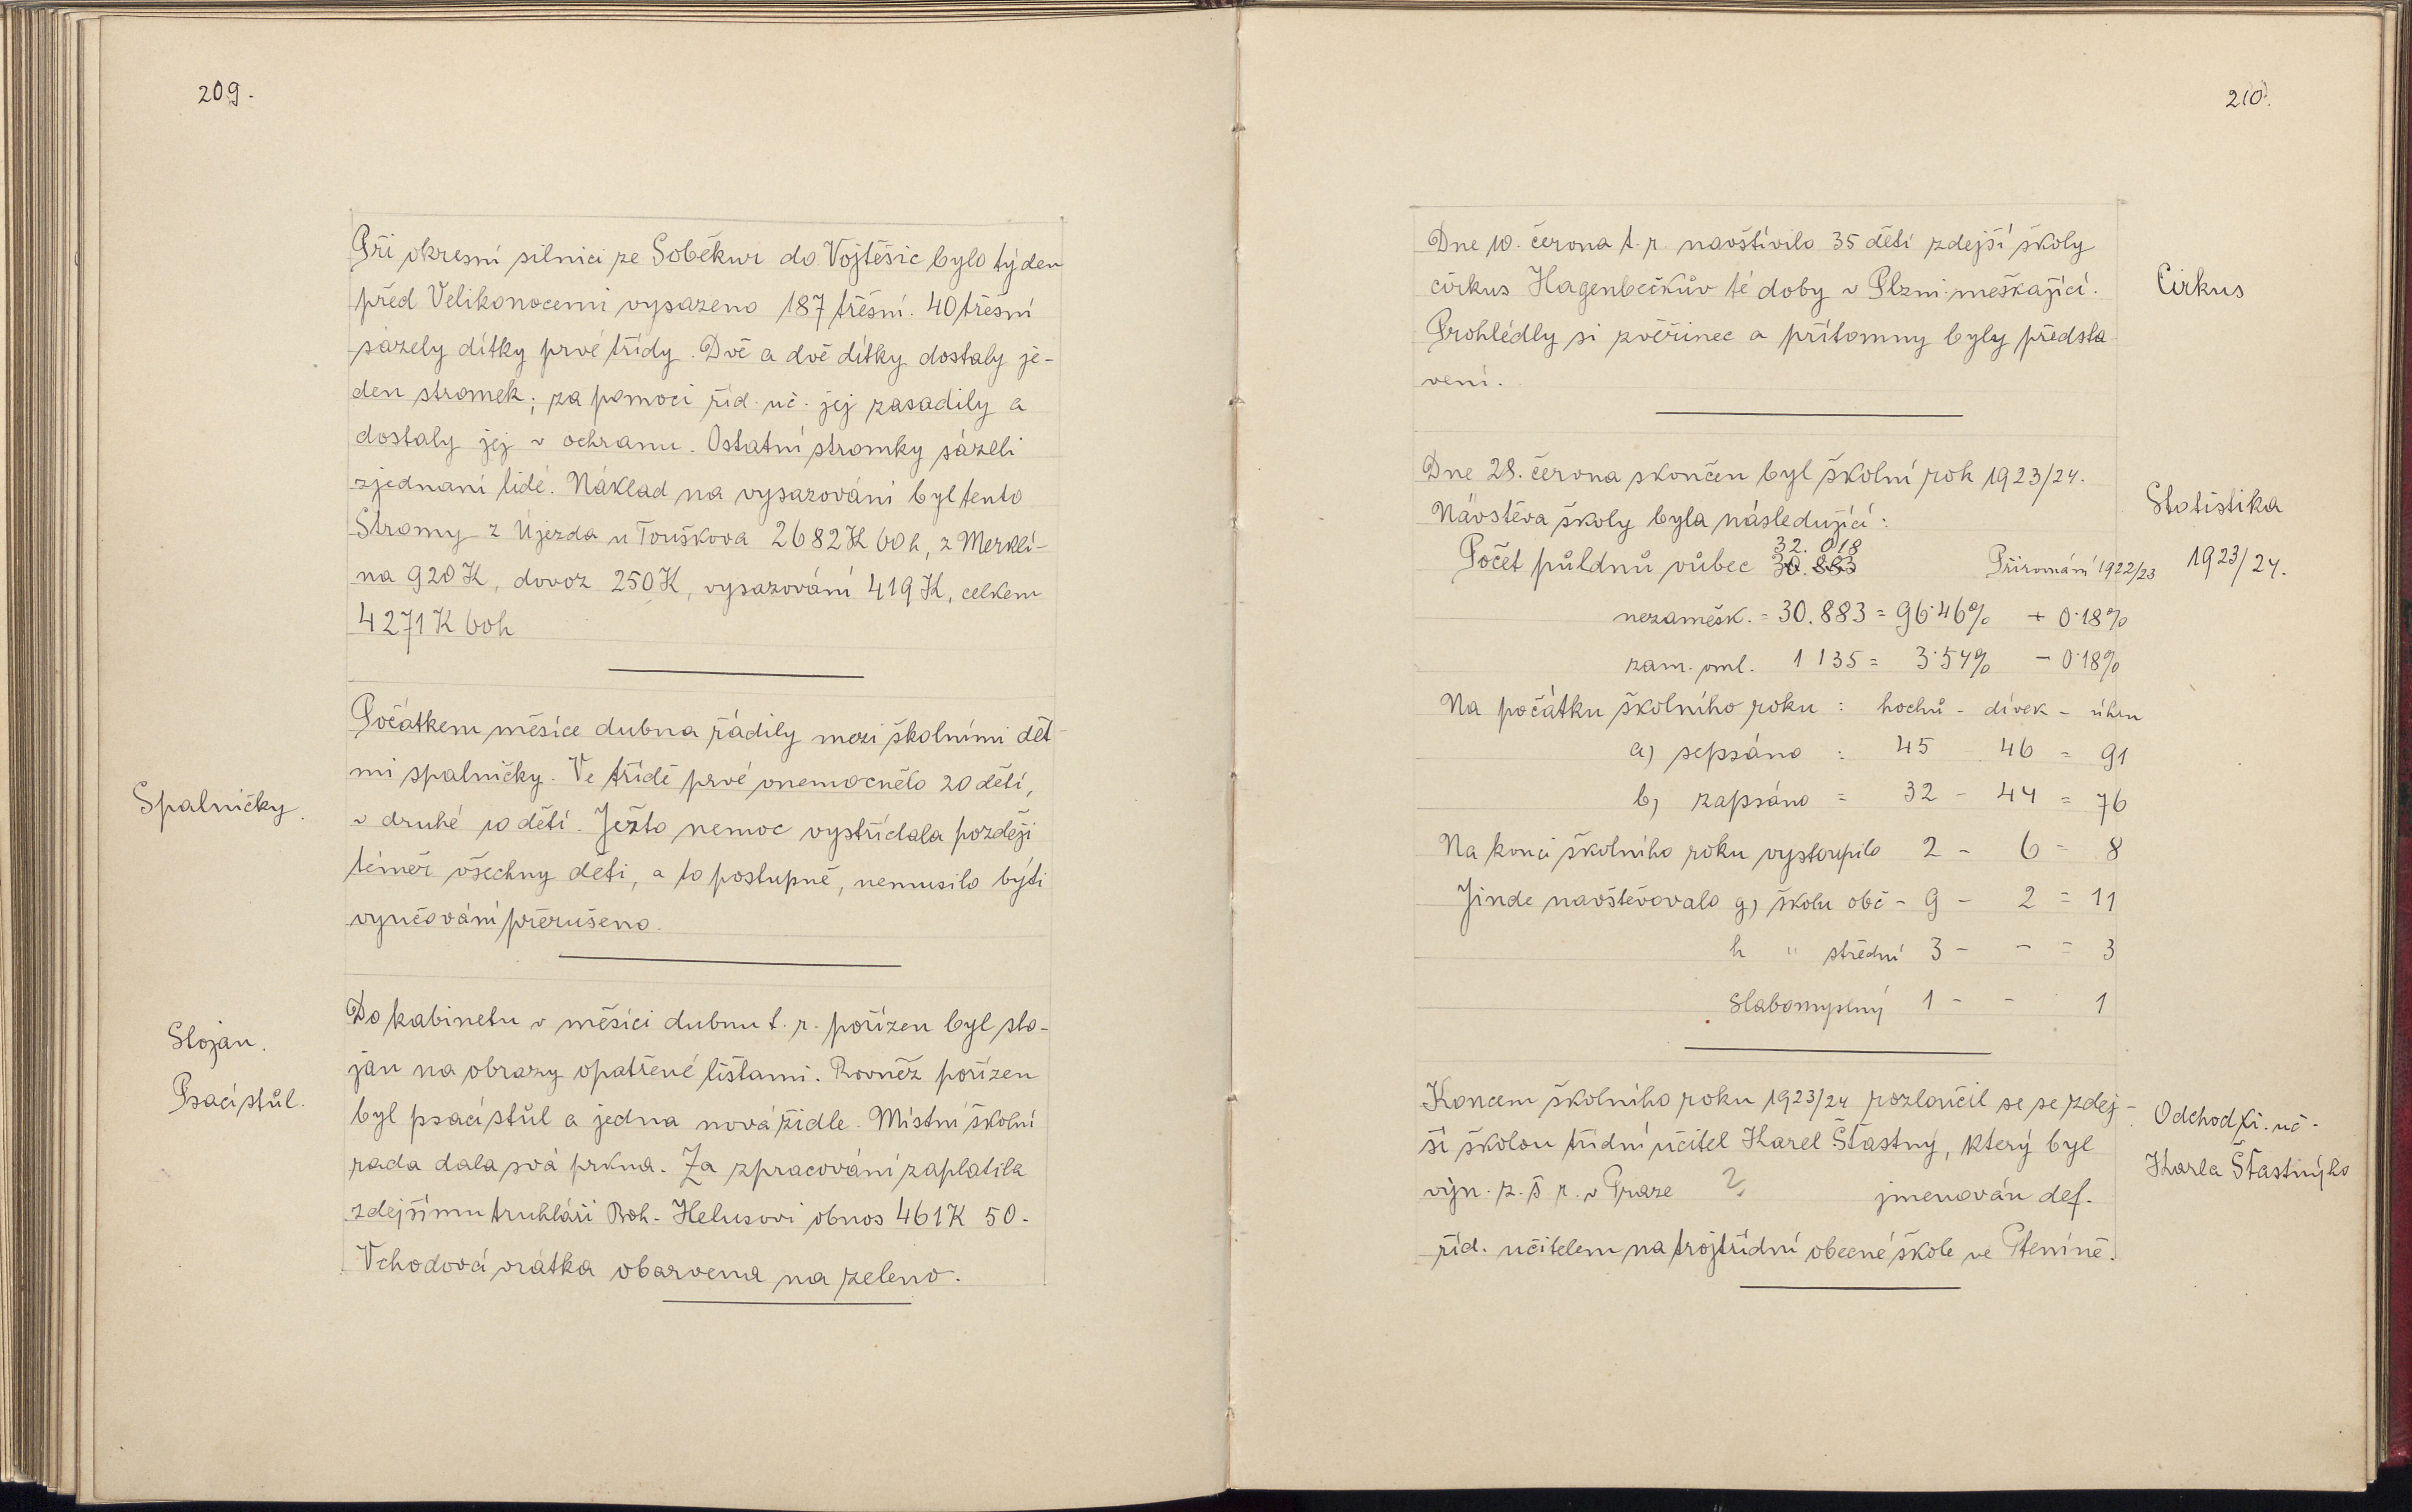 209.
Při okresní silnici ze Soběkur do Vojtěšic bylo týden
před Velikonocemi vysazeno 187 třešní. 40 třešní
sázely dítky prvé třídy. Dvě a dvě dítky dostaly je-
den stromek; za pomoci říd. uč. jej zasadily a
dostaly jej v ochranu. Ostatní stromky sázeli
zjednaní lidé. Náklad na vysazování byl tento
Stromy z Újezda u Touškova 2682 K 60 h, z Merklí-
na 920 K, dovoz 250 K, vysazování 419 K, celkem
4271 K 60h
Spalničky.
Počátkem měsíce dubna řádily mezi školními dět-
mi spalničky. Ve třídě prvé onemocnělo 20 dětí,
v druhé 10 dětí. Ježto nemoc vystřídala později
téměř všechny děti, a to postupně, nemusilo býti
vyučování přerušeno.
Stojan.
Psací stůl.
Do kabinetu v měsíci dubnu t. r. pořízen byl sto-
jan na obrazy opatřené lištami. Rovněž pořízen
byl psací stůl a jedna nová židle. Místní školní
rada dala svá prkna. Za zpracování zaplatila
zdejšímu truhláři Boh. Helusovi obnos 461 K 50.
Vchodová vrátka obarvena na zeleno.
210.
Dne 10. června t. r. navštívilo 35 dětí zdejší školy
cirkus Hagenbeckův té doby v Plzni meškající.
Prohlédly si zvěřinec a přítomny byly předsta
vení.
Cirkus
Dne 28. června skončen byl školní rok 1923/24.
Návštěva školy byla následující:
Statistika
1923/24.
32. 018
Počet půldnů vůbec 30. 883 Přirovnání 1922/23
nezamešk. = 30. 883 = 96·46% + 0·18%
zam. oml. 1 135 = 3·54% - 0·18%
Na počátku školního roku : hochů - dívek - úhrn
a) sepsáno : 45 - 46 = 91
b) zapsáno = 32 - 44 = 76
Na konci školního roku vystoupilo 2 - 6 - 8
Jinde navštěvovalo g) školu obč - 9 - 2 = 11
h " střední 3 - - = 3
Slabomyslný 1 - - 1
Koncem školního roku 1923/24 rozloučil se se zdej-
ší školou třídní učitel Karel Šťastný, který byl
výn. z. š r. v Praze ? jmenován def.
říd. učitelem na trojtřídní obecné škole ve Ptenině.
Odchod tř. uč.
Karla Šťastnýho